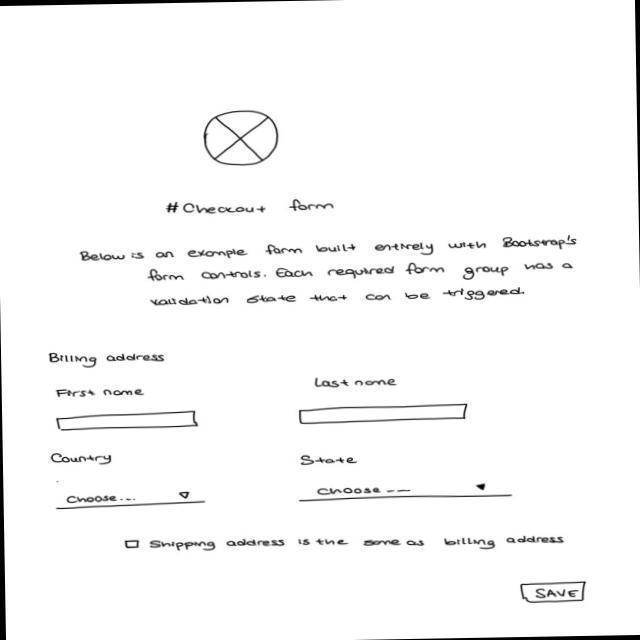 #Checkout form
Below is an example form built entirely with Bootstrap's
form controls. Each required form group has a
validation state that can be triggered.
Billing address
First name
Last name
Country
State
Choose...
Choose --
Shipping address is the same as billing address
SAVE